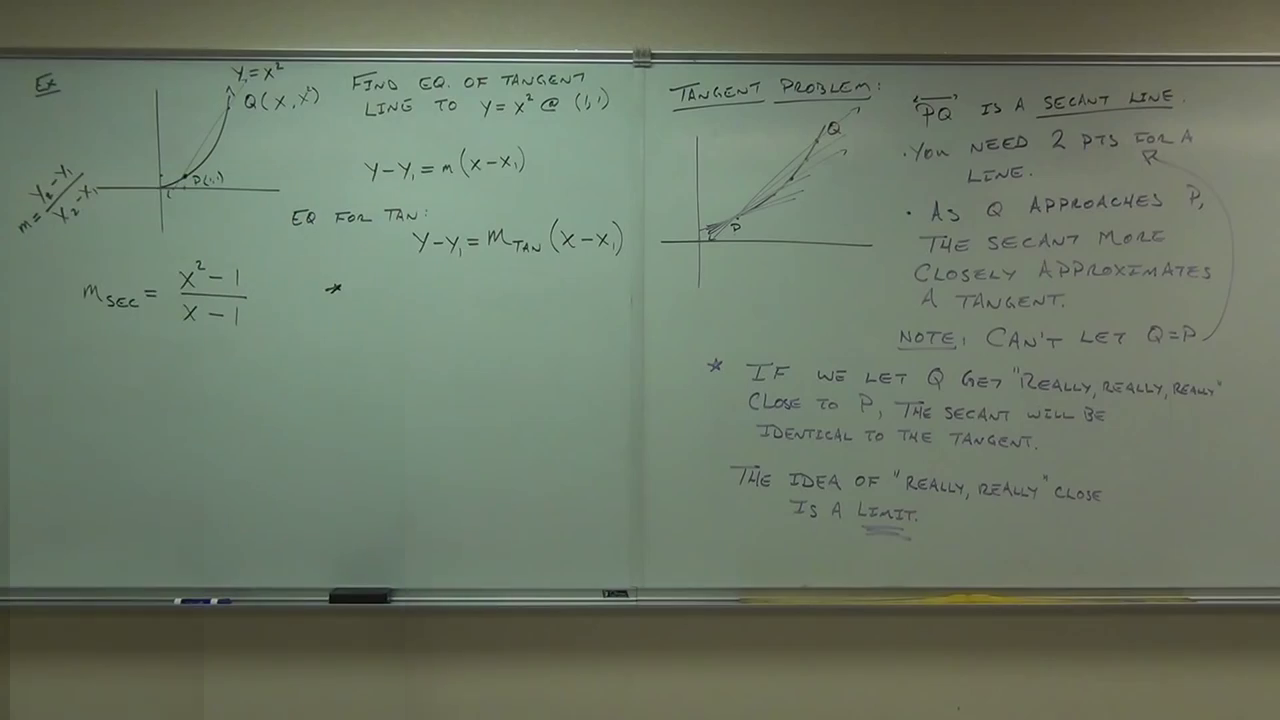 Ex
Y=X²
Q(X, X²)
P(1,1)
m = Y₂-Y₁ / X₂-X₁
FIND EQ. OF TANGENT
LINE TO Y=X² @ (1,1)
Y-Y₁=m(X-X₁)
EQ FOR TAN:
Y-Y₁=m_TAN(X-X₁)
m_SEC = X²-1 / X-1
*
TANGENT PROBLEM:
Q
P
"PQ" IS A SECANT LINE.
·YOU NEED 2 PTS FOR A
LINE.
· AS Q APPROACHES P,
THE SECANT MORE
CLOSELY APPROXIMATES
A TANGENT.
NOTE: CAN'T LET Q=P
* IF WE LET Q GET "REALLY, REALLY, REALLY"
CLOSE TO P, THE SECANT WILL BE
IDENTICAL TO THE TANGENT.
THE IDEA OF "REALLY, REALLY" CLOSE
IS A LIMIT.